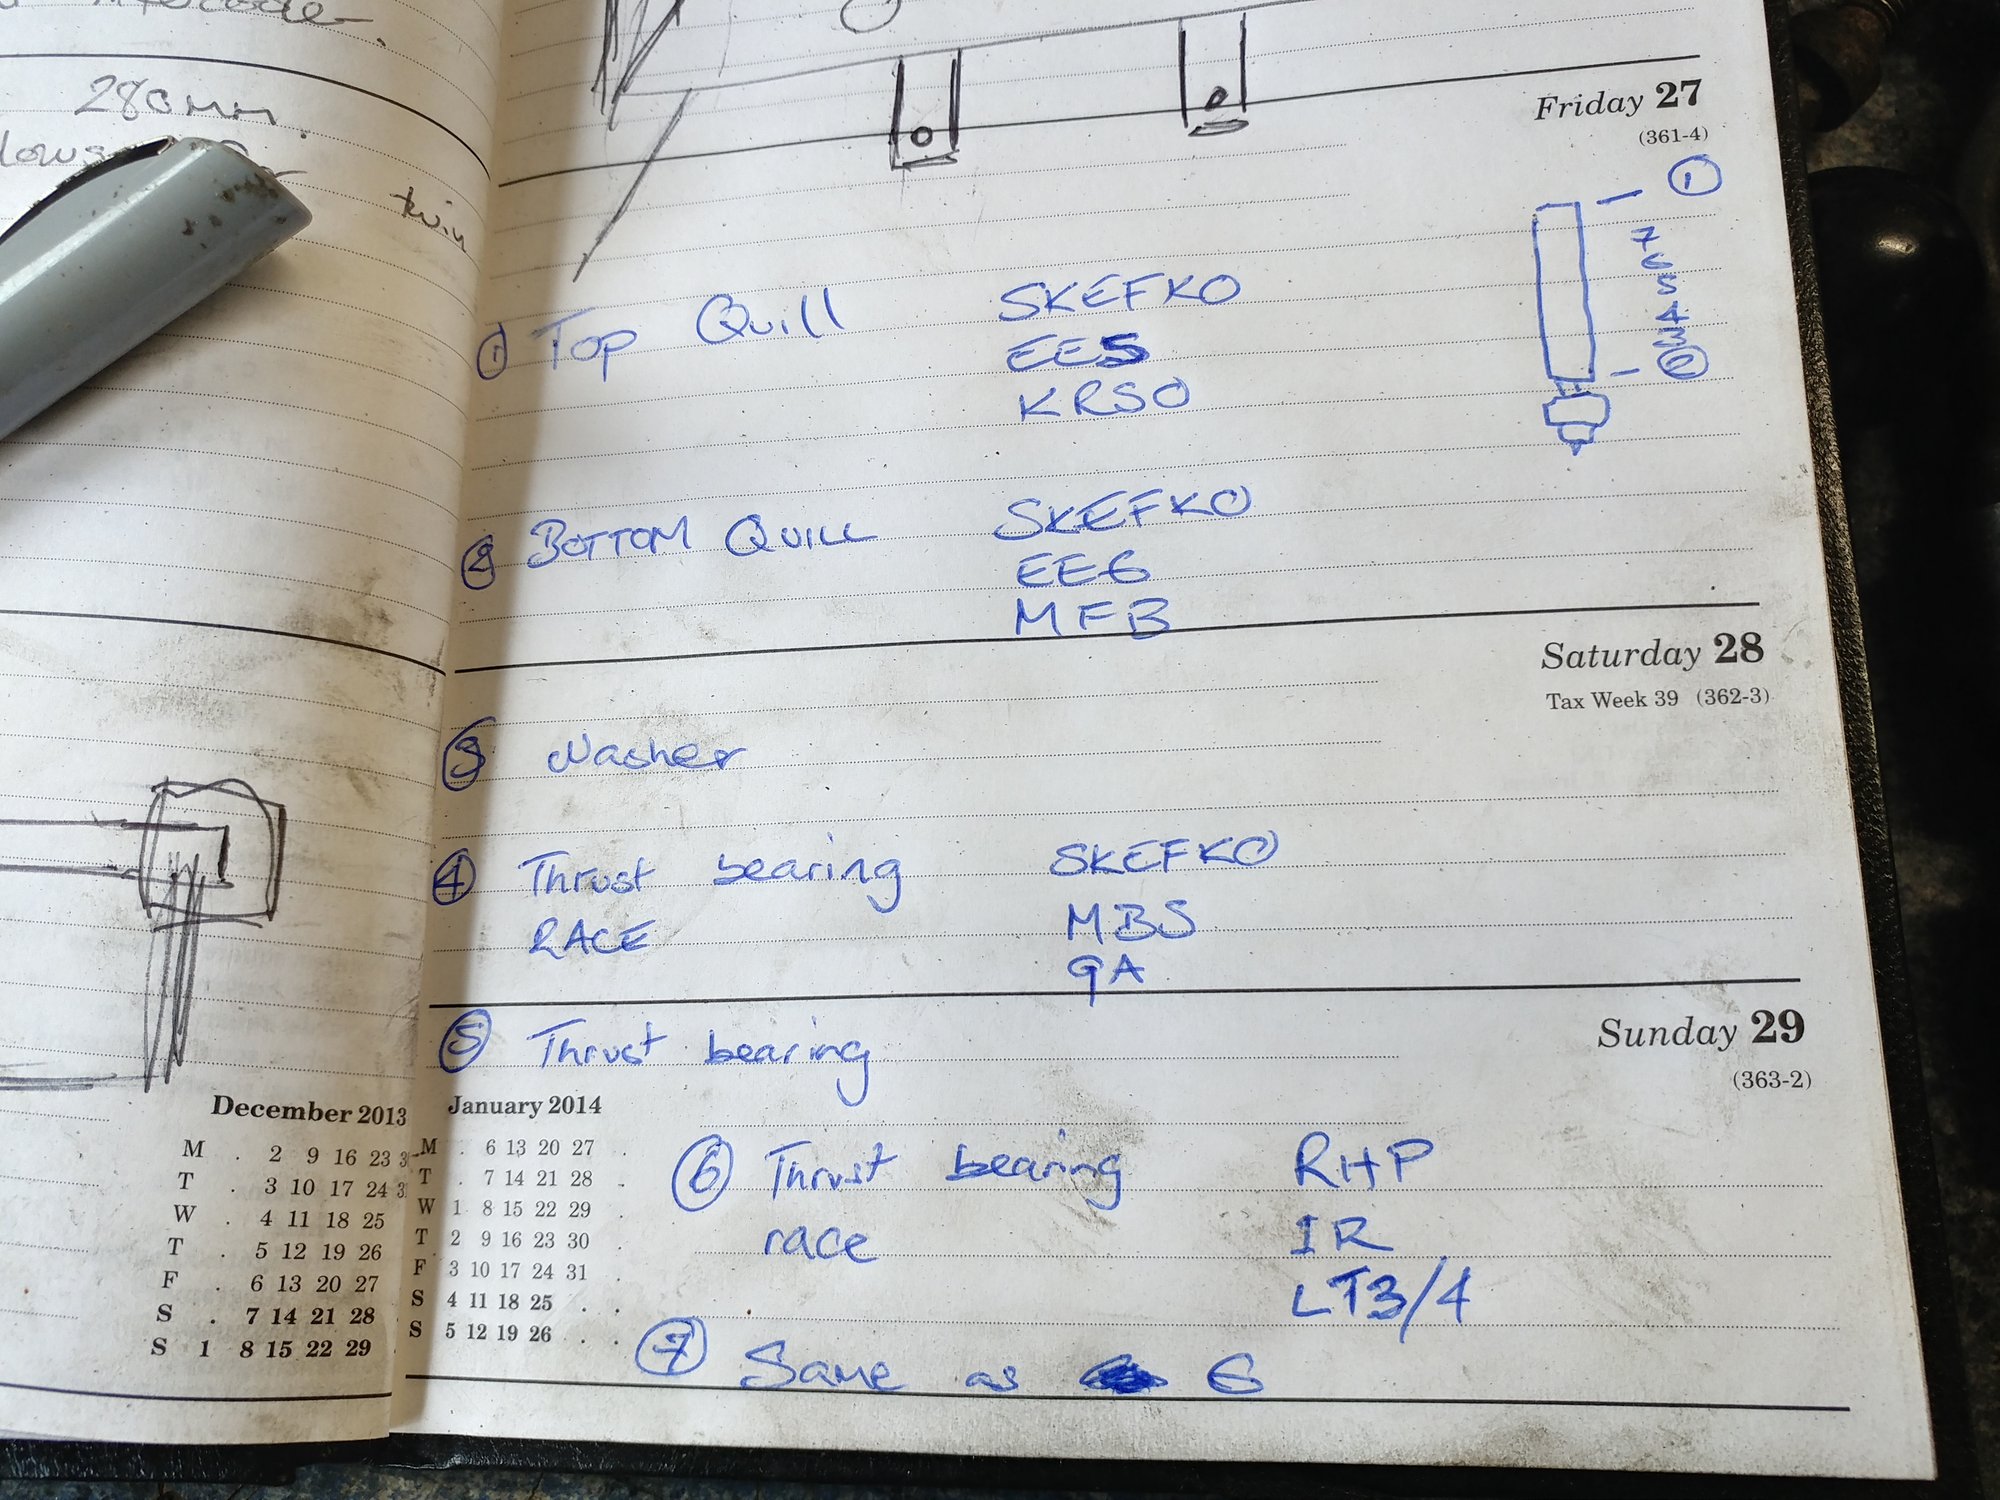 280mm.
twin
Friday 27
(361-4)
①
7
6
5
4
3
②
① Top Quill SKEFKO
EE5
KRSO
② BOTTOM QUILL SKEFKO
EE6
MFB
Saturday 28
Tax Week 39 (362-3)
③ Washer
④ Thrust bearing SKEFKO
RACE MBS
9A
Sunday 29
(363-2)
⑤ Thrust bearing
⑥ Thrust bearing RHP
race IR
LT3/4
⑦ Same as 6
December 2013
M . 2 9 16 23
T . 3 10 17 24
W . 4 11 18 25
T . 5 12 19 26
F . 6 13 20 27
S . 7 14 21 28
S 1 8 15 22 29
January 2014
M . 6 13 20 27 .
T . 7 14 21 28 .
W 1 8 15 22 29 .
T 2 9 16 23 30 .
F 3 10 17 24 31 .
S 4 11 18 25 . .
S 5 12 19 26 . .